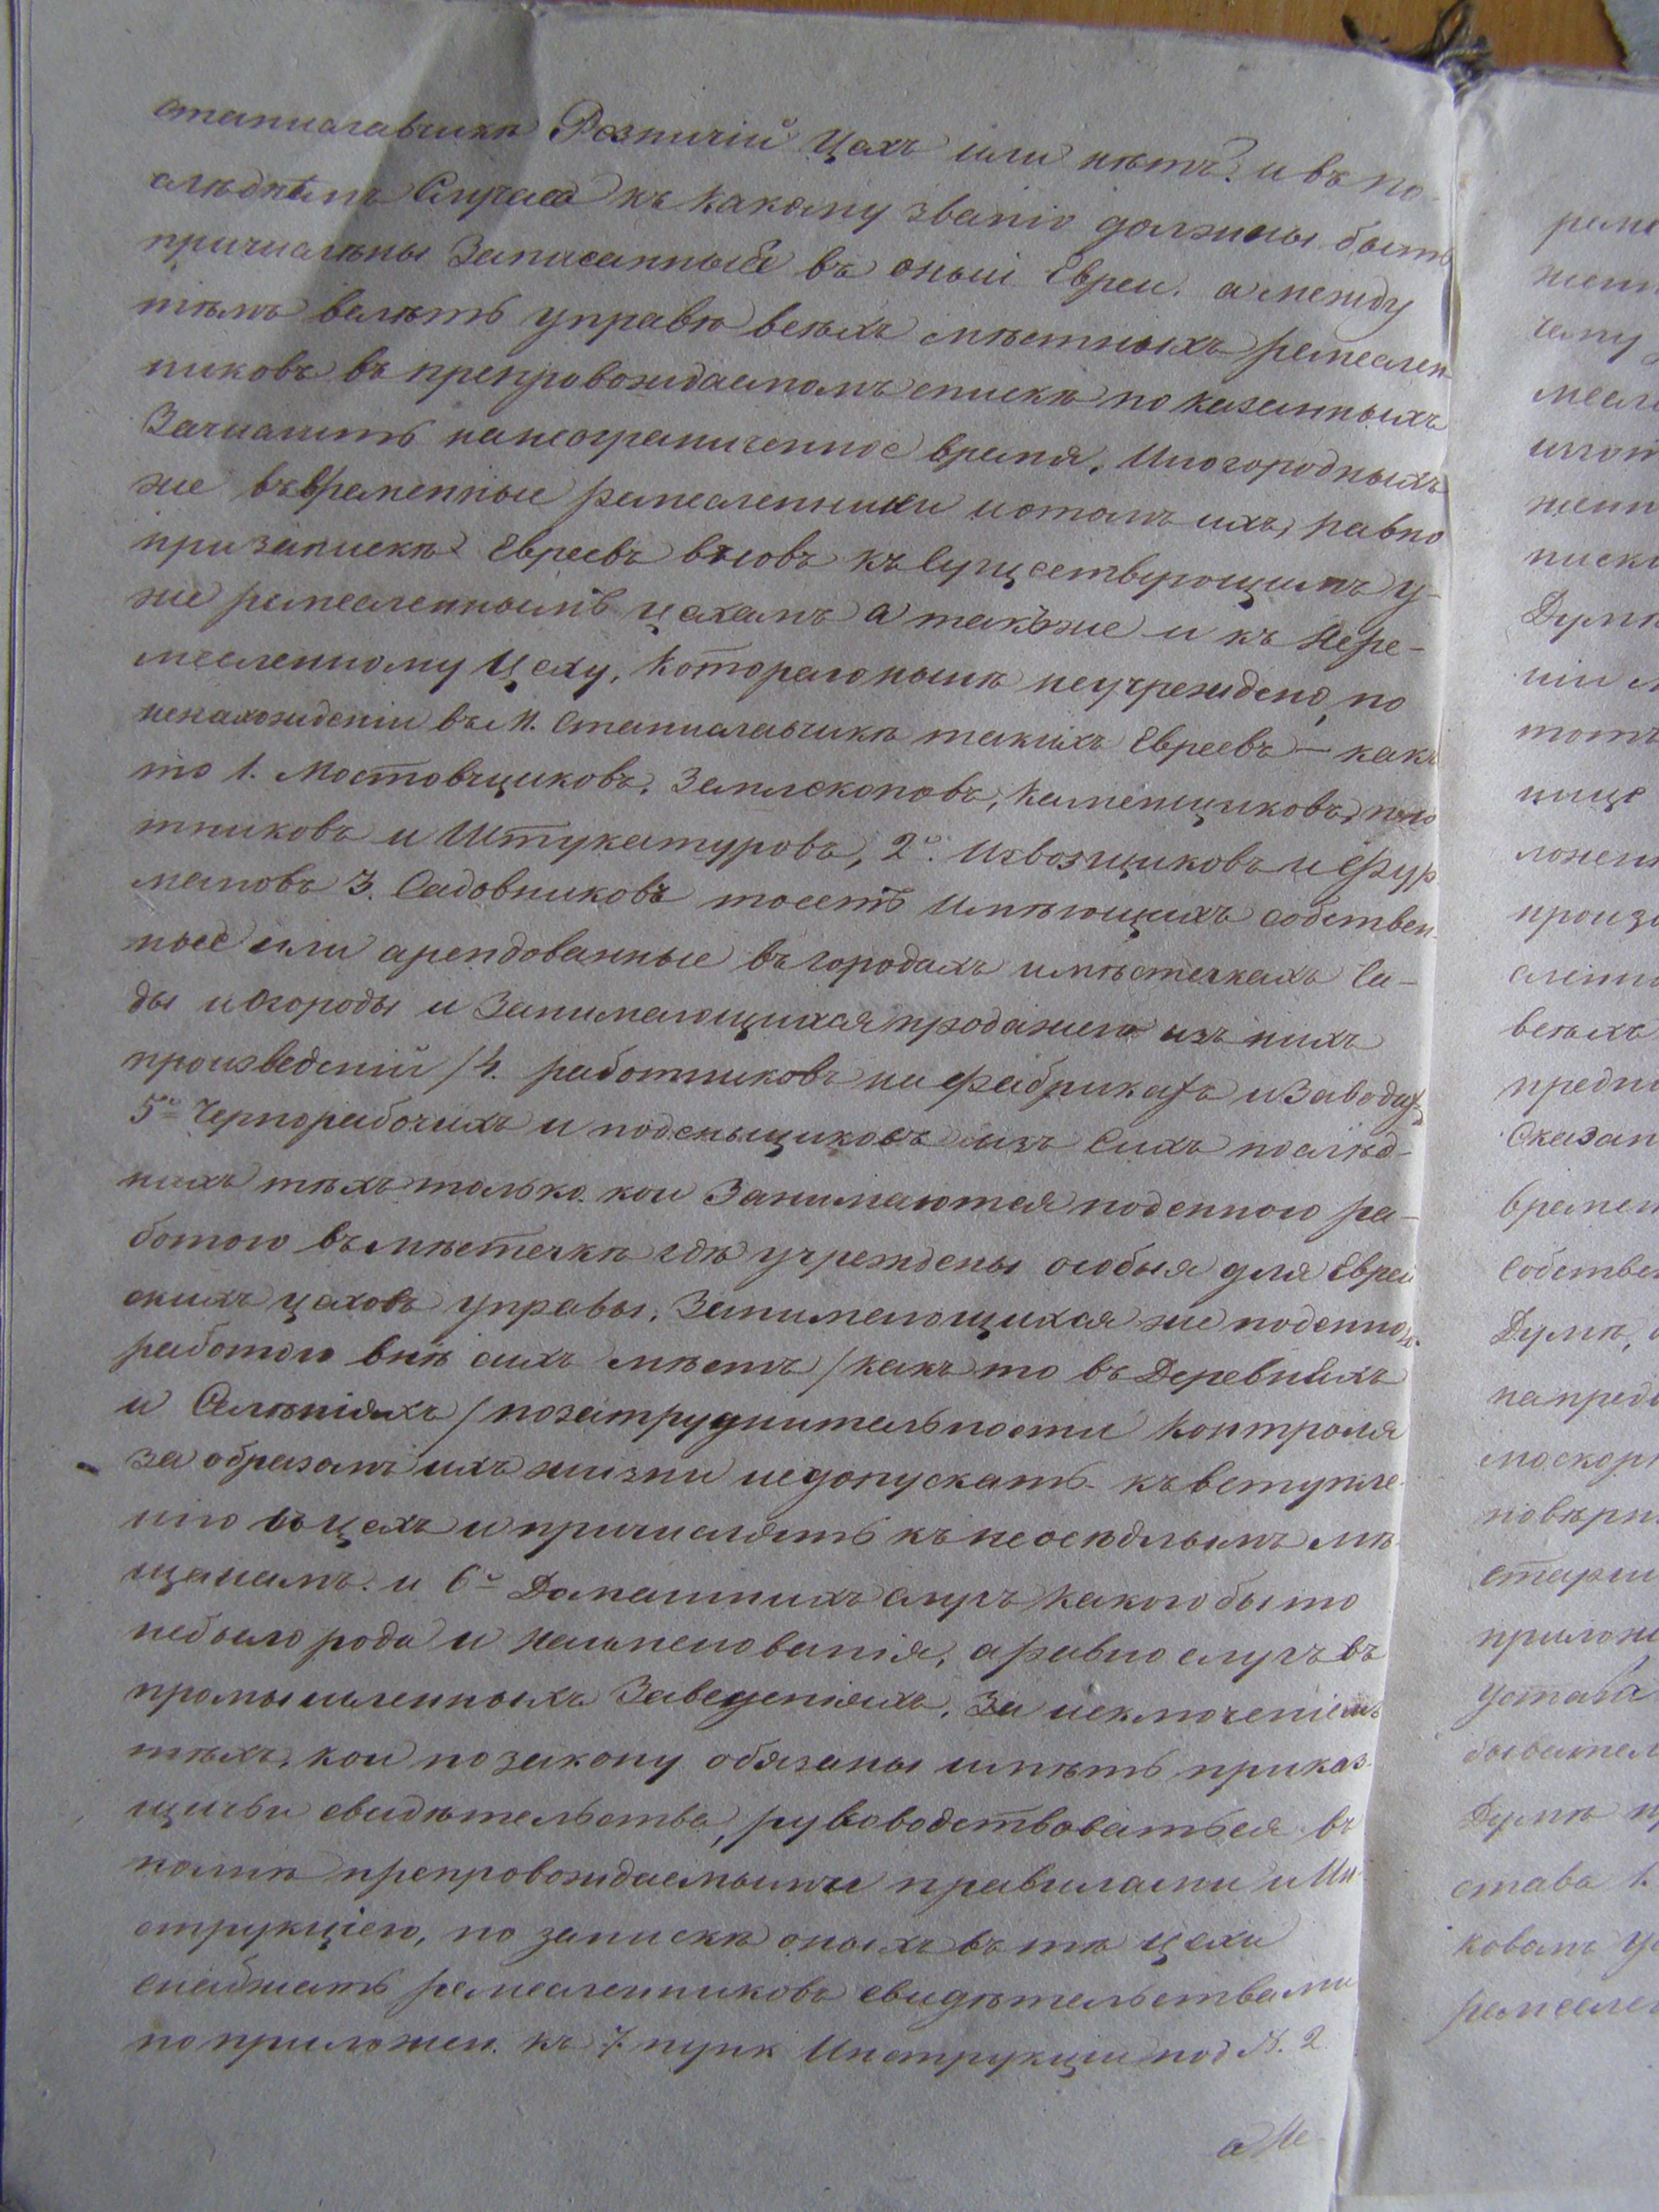 станиславчикѣ Розничій Цехъ или нѣтъ? и въ по-
слѣднемъ Случаѣ къ какому званію должны быть
причислены Записанныѣ въ оный Евреи. а между
тѣмъ велѣть управѣ всѣхъ мѣстныхъ ремеслен-
никовъ въ препровождаемомъ спискѣ показанныхъ
Зачислить на неограниченное время, Иногородныхъ
же въ временные ремесленники и отомъ ихъ, равно
при запискѣ Евреевъ вновь къ существующимъ у-
же ремесленнымъ цехамъ а также и къ Нере-
месленному Цеху, котораго нынѣ неучреждено, по
ненахожденіи въ М. Станиславчикѣ такихъ Евреевъ – какъ
то 1. Мостовщиковъ, Землекоповъ, Каменщиковъ, пло
тниковъ и Штукатуровъ, 2е. Извозщиковъ и Фур
мановъ 3. Садовниковъ тоесть имѣющихъ собствен-
ные или арендованные въ городахъ и мѣстечкахъ Са-
ды и Огороды и Занимающихся продажею изъ нихъ
произведеній / 4. работниковъ на фабрикахъ и Заводахъ
5е Чернорабочихъ и поденьщиковъ изъ Сихъ послѣд-
нихъ тѣхъ только кои Занимаются поденною ра-
ботою въ мѣстечкѣ гдѣ учреждены особыя для Еврей
скихъ цеховъ управы, Занимающихся же поденною
работою внѣ сихъ мѣстъ / какъ то въ Деревняхъ
и Селѣніяхъ / по затруднительности Контроля
за образомъ ихъ жизни недопускать къ вступле-
нію въ цехъ и причислять къ неосѣдлымъ мѣ-
щанамъ. и 6е Домашнихъ слугъ какого бы то
небыло рода и наименованія, а равно слугъ въ
промышленныхъ Заведеніяхъ, За исключеніемъ
тѣхъ, кои по закону обязаны имѣть приказ-
щичьи свидѣтельства, руководствоваться въ
полнѣ препровождаемыми правилами и Ин-
струкціею, по запискѣ оныхъ въ тѣ цехи
снабжать ремесленниковъ свидѣтельствами
по приложен. къ 7. пунк Инструкціи под N. 2
а Не-
реме
жен
чему
месл
жен
писк
Думѣ
ніи
тотъ
ложен
произ
слен
всѣхъ
Сказан
времен
Собствен
Думѣ,
на пред
повѣрк
старш
прилож
Устава
Думѣ
става 1.
ковом
ремеслен